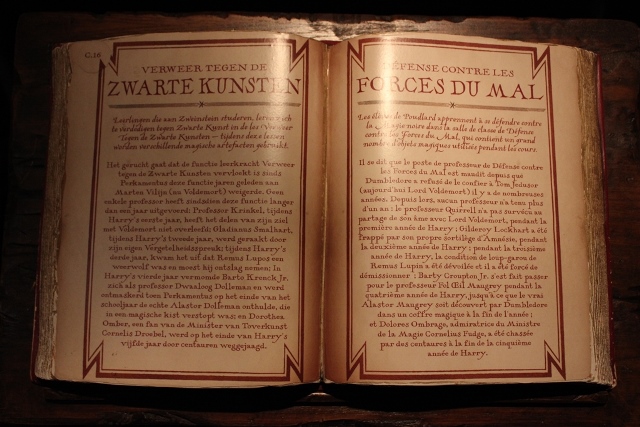 C.20
VERWEER TEGEN DE
ZWARTE KUNSTEN
Leerlingen die aan Zweinstein studeren, leren zich
te verdedigen tegen Zwarte Kunst in de les Verweer
Tegen de Zwarte Kunsten — tijdens deze lessen
worden verschillende magische artefacten gebruikt.
Het gerucht gaat dat de functie leerkracht Verweer
tegen de Zwarte Kunsten vervloekt is sinds
Perkamentus deze functie jaren geleden aan
Marten Vilijn (nu Voldemort) weigerde. Geen
enkele professor heeft sindsdien deze functie langer
dan een jaar uitgevoerd: Professor Krinkel, tijdens
Harry's eerste jaar, heeft het delen van zijn ziel
met Voldemort niet overleefd; Gladianus Smalhart,
tijdens Harry's tweede jaar, werd geraakt door
zijn eigen Vergetelheidsspreuk; tijdens Harry's
derde jaar, kwam het uit dat Remus Lupos een
weerwolf was en moest hij ontslag nemen; In
Harry's vierde jaar vermomde Barto Krenck Jr.
zich als professor Dwaaloog Dolleman en werd
ontmaskerd toen Perkamentus op het einde van het
schooljaar de echte Alastor Dolleman onthulde, die
in een magische kist verstopt was; en Dorothea
Omber, een fan van de Minister van Toverkunst
Cornelis Droebel, werd op het einde van Harry's
vijfde jaar door centauren weggejaagd.
DÉFENSE CONTRE LES
FORCES DU MAL
Les élèves de Poudlard apprennent à se défendre contre
la Magie noire dans la salle de classe de Défense
contre les Forces du Mal, qui contient un grand
nombre d'objets magiques utilisés pendant les cours.
Il se dit que le poste de professeur de Défense contre
les Forces du Mal est maudit depuis que
Dumbledore a refusé de le confier à Tom Jedusor
(aujourd'hui Lord Voldemort) il y a de nombreuses
années. Depuis lors, aucun professeur n'a tenu plus
d'un an : le professeur Quirrell n'a pas survécu au
partage de son âme avec Lord Voldemort, pendant la
première année de Harry ; Gilderoy Lockhart a été
frappé par son propre sortilège d'Amnésie, pendant
la deuxième année de Harry ; pendant la troisième
année de Harry, la condition de loup-garou de
Remus Lupin a été dévoilée et il a été forcé de
démissionner ; Barty Croupton Jr. s'est fait passer
pour le professeur Fol Œil Maugrey pendant la
quatrième année de Harry, jusqu'à ce que le vrai
Alastor Maugrey soit découvert par Dumbledore
dans un coffre magique à la fin de l'année ;
et Dolores Ombrage, admiratrice du Ministre
de la Magie Cornelius Fudge, a été chassée
par des centaures à la fin de la cinquième
année de Harry.